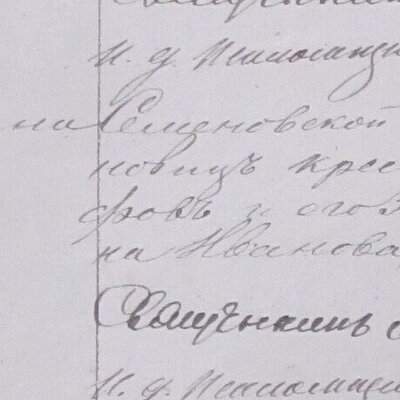 Священник
И. д. Псаломщи
на Семеновской
новицъ крес
фовъ и его з
на Иванова
Священникъ
И. д. Псаломщи